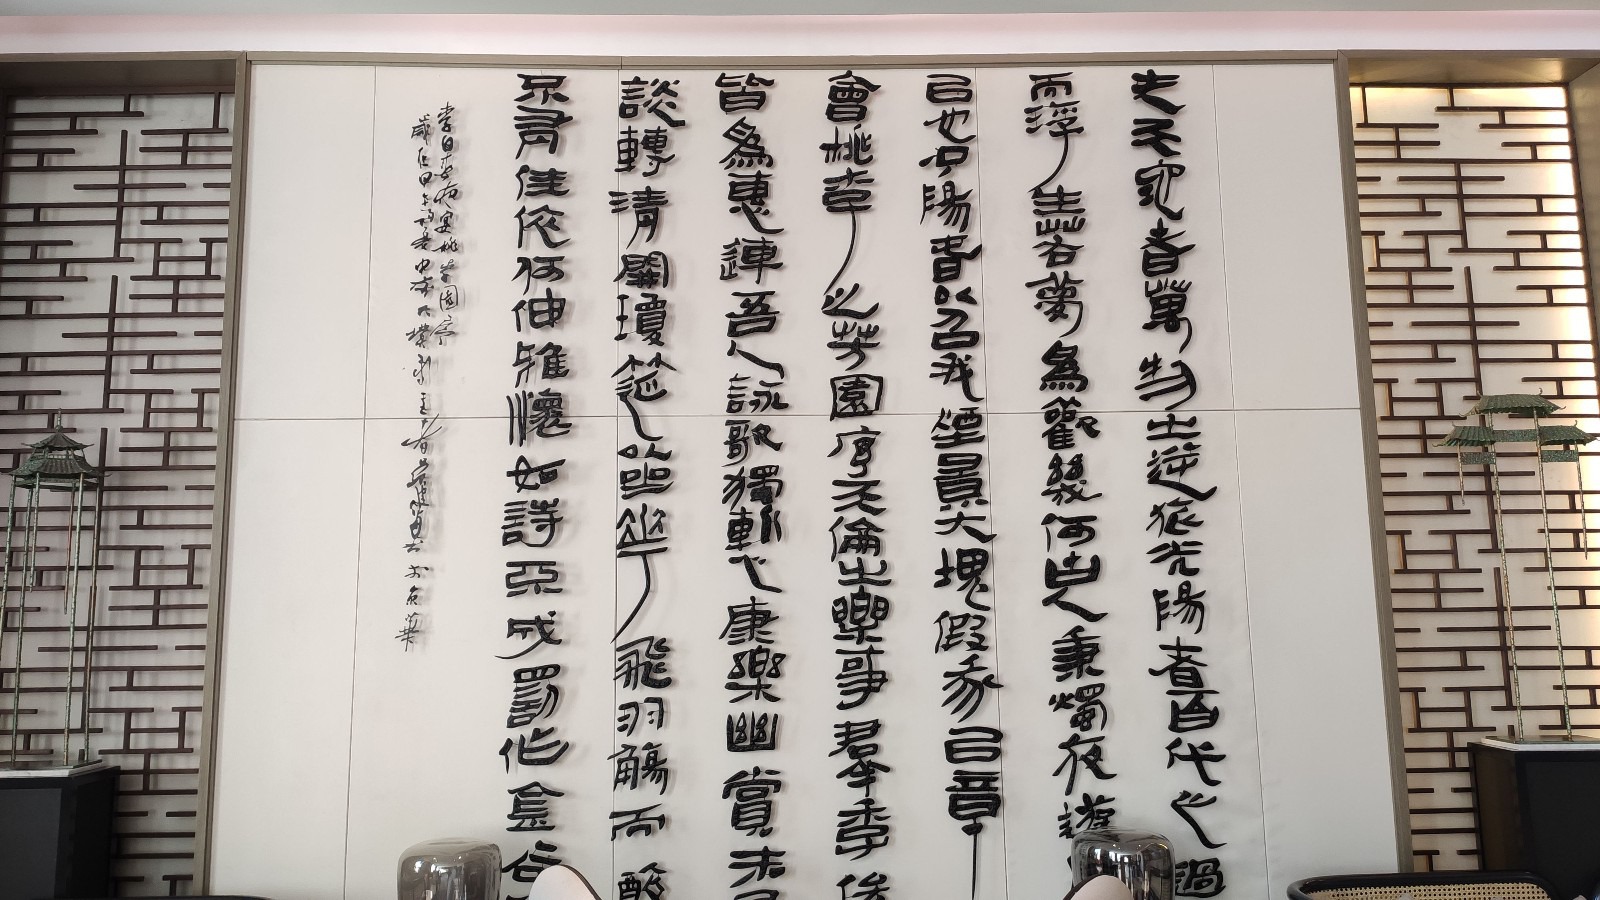 夫天地者萬物之逆旅光陰者百代之過
而浮生若夢為歡幾何古人秉燭夜遊
良有也況陽春以召我煙景大塊假我以文章
會桃李之芳園序天倫之樂事群季俊
皆為惠連吾人詠歌獨慚康樂幽賞未
談轉清開瓊筵以坐花飛羽觴而醉
不有佳作何伸雅懷如詩不成罰依金谷
李白春夜宴桃李園序